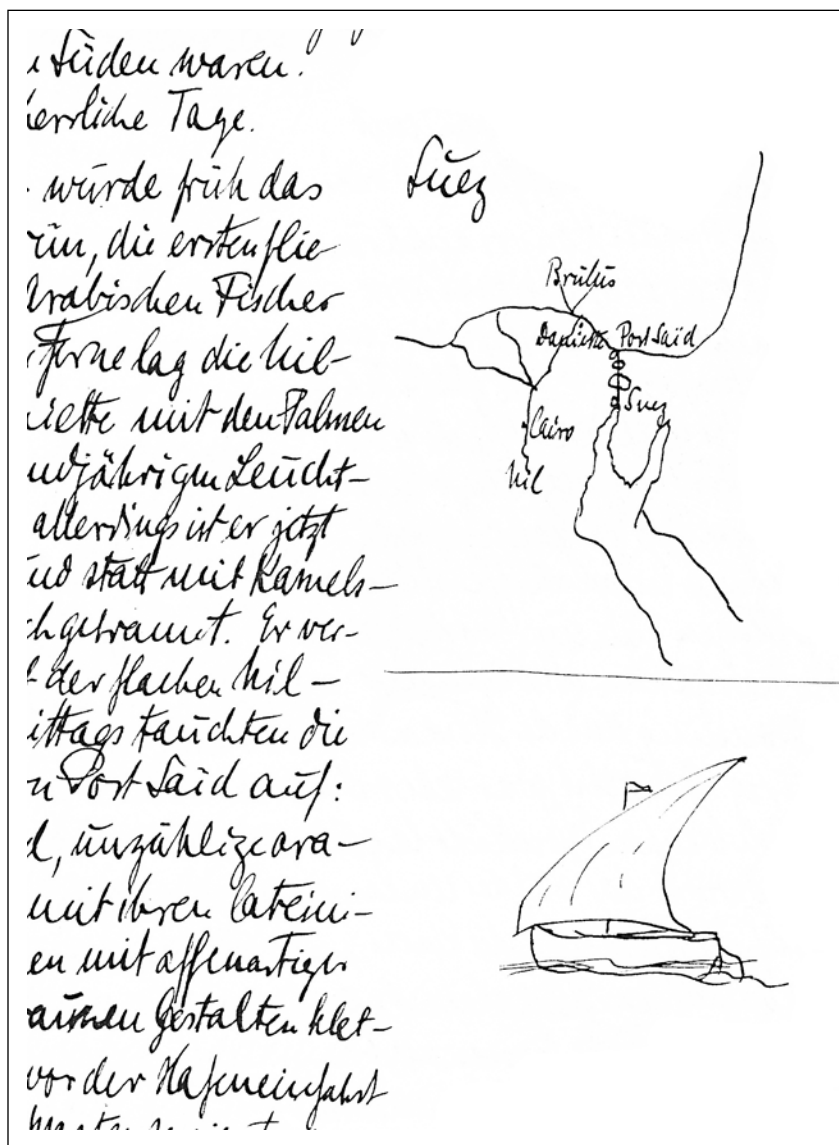 n Süden waren.
herrliche Tage.
wurde früh das
rün, die ersten flie
Arabischen Fischer
Ferne lag die Nil-
iette mit den Palmen
undjährigen Leucht-
allerdings ist er jetzt
und statt mit Kamels-
ch getramt. Er ver-
t der flachen Nil-
ittags tauchten die
n Port Said auf:
d, unzählige ara-
mit ihren lateini-
en mit affenartiger
aunen Gestalten klet-
vor der Hafeneinfahrt
Suez
Brutus
Damiette
Port Saïd
Suez
Cairo
Nil